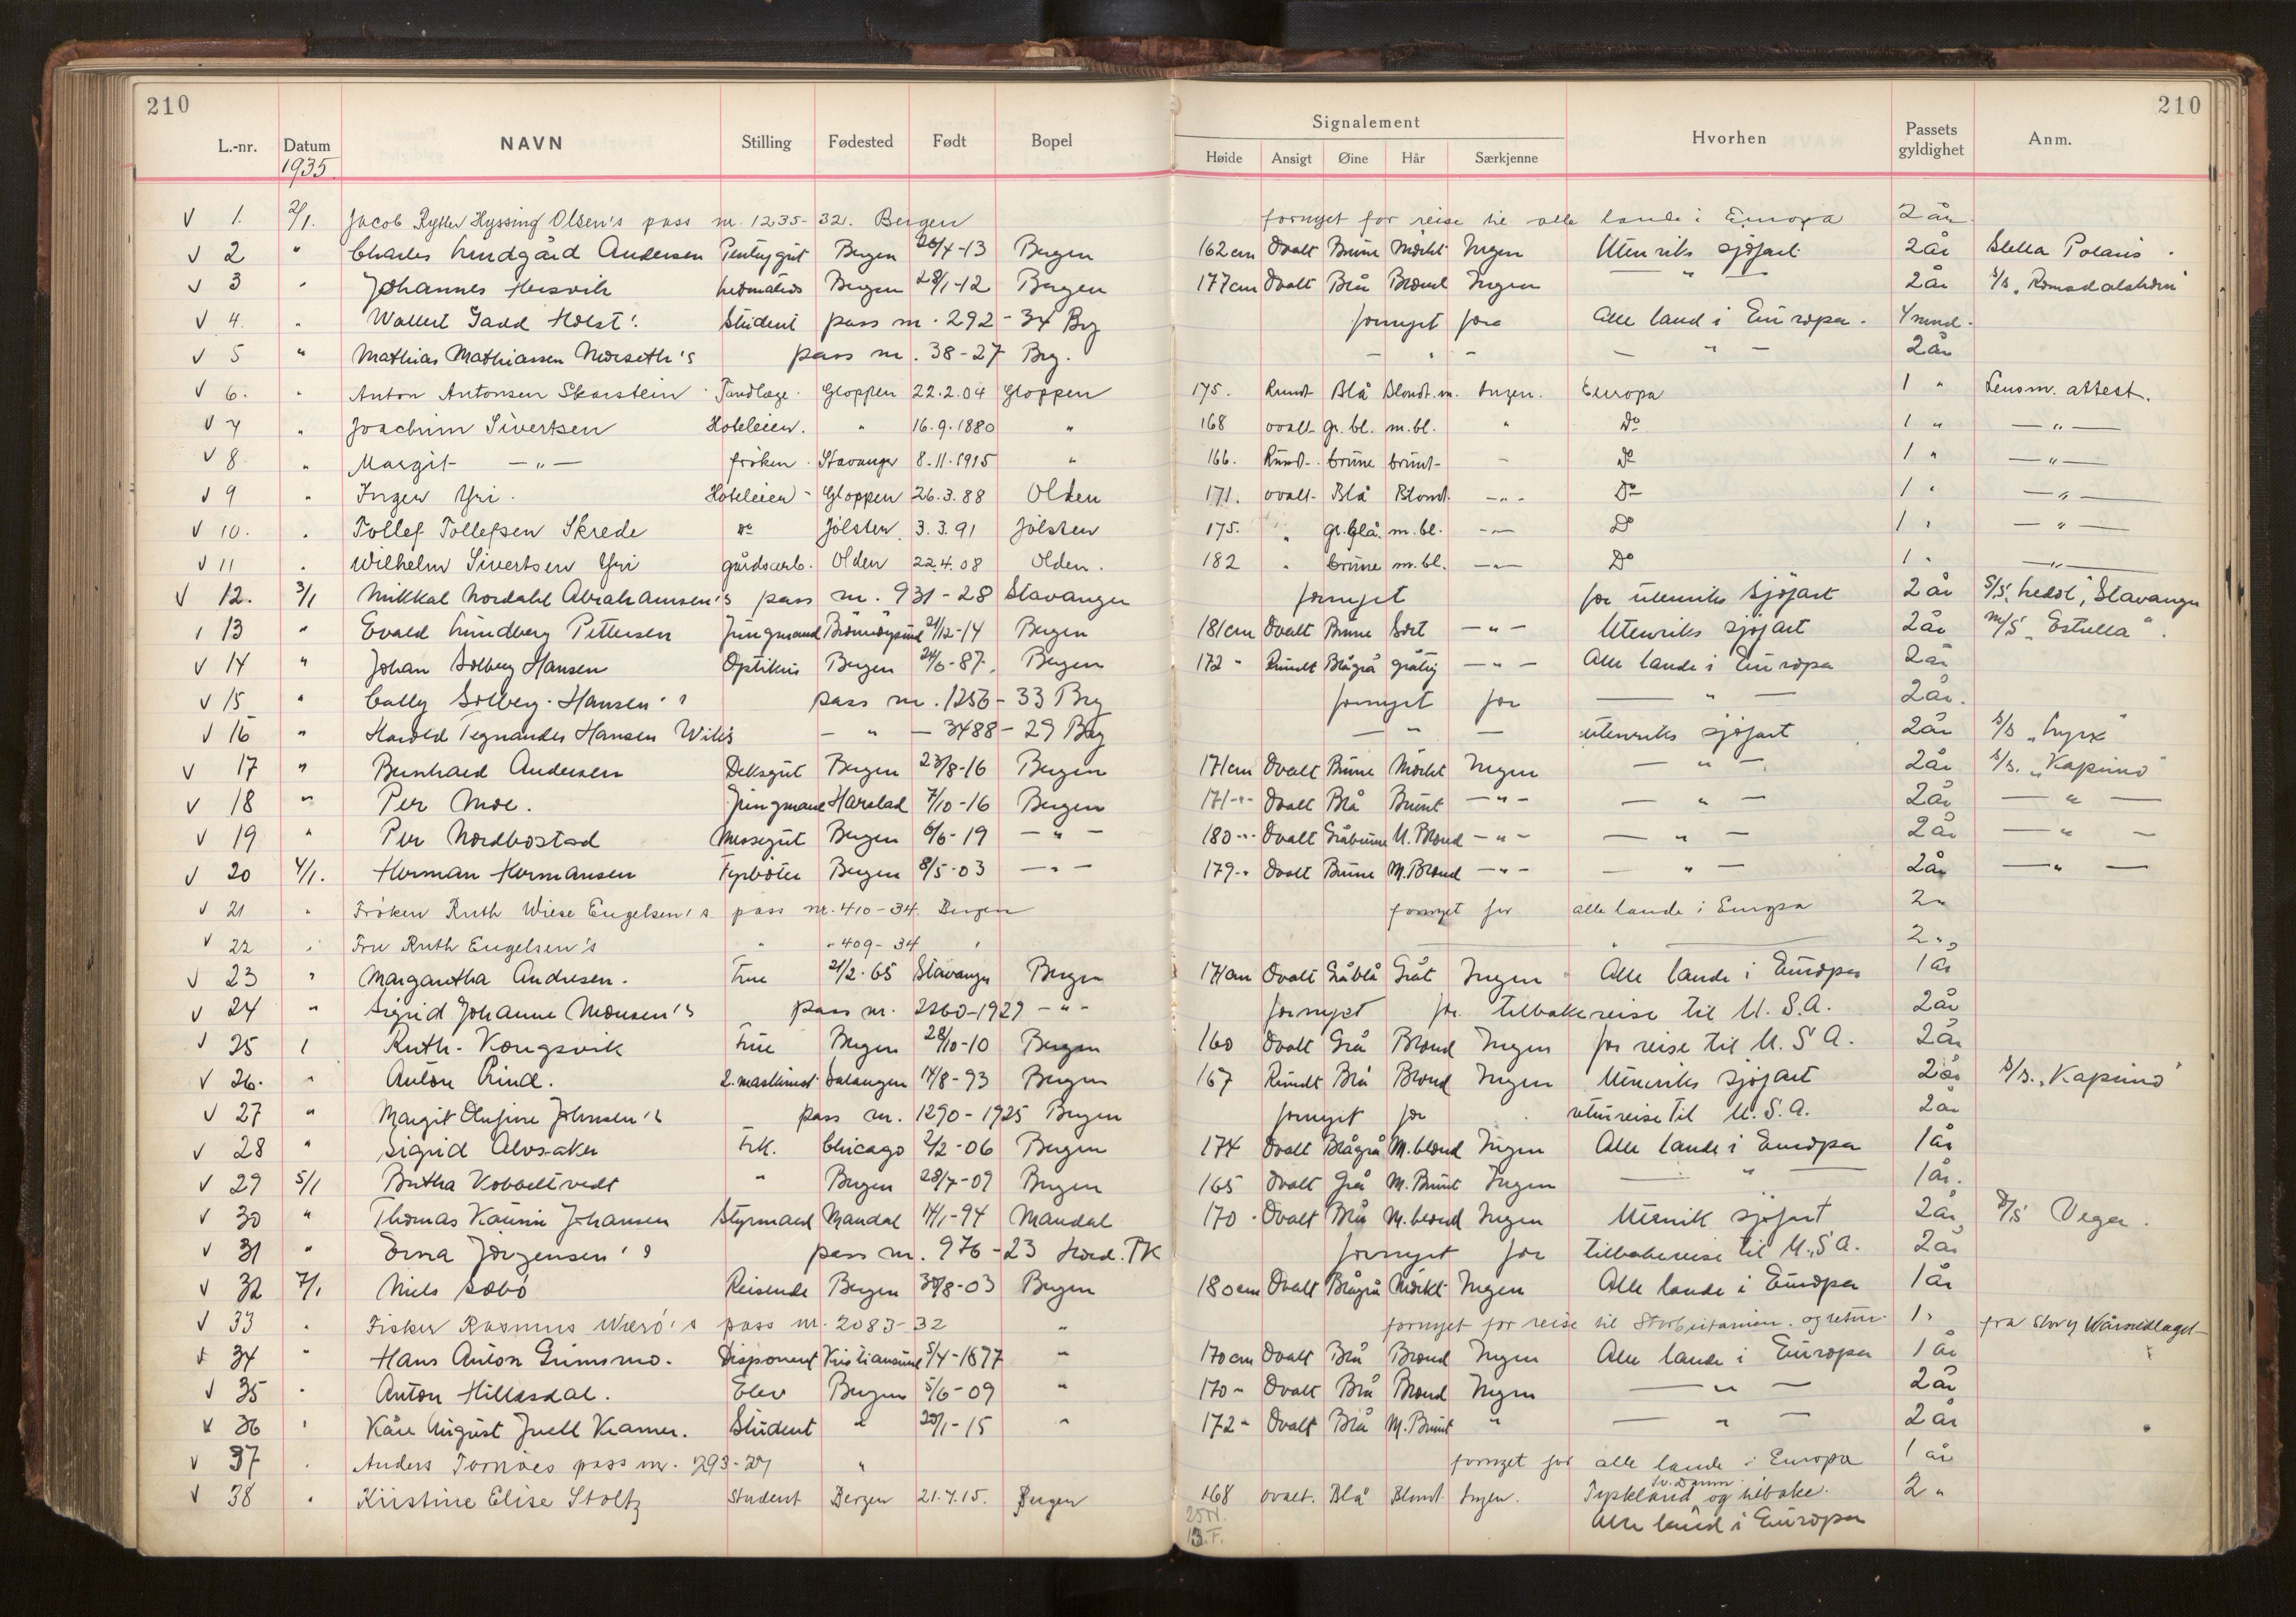 210 210
Signalement
L.-nr. Datum NAVN Stilling Fødested Født Bopel Høide Ansigt Øine Hår Særkjenne Hvorhen Passets gyldighet Anm.
1935.
V 1. 2/1. Jacob Hyssing Olsen's pass nr. 1235-32. Bergen fornyet for reise til alle lande i Europa 2 år
V 2 " Charles Lundgård Andersen Pentrygut Bergen 26/4-13 Bergen 162 cm Ovalt Brune Mørkt Ingen Utenriks sjøfart 2 år Stella Polaris.
V 3 " Johannes Hersvik Bergen 28/1-12 Bergen 177 cm Ovalt Blå Blond Ingen — " — 2 år S/S. „Romsdalshorn"
V 4. " Holst's Student pass nr. 292-34 Brg fornyet for Alle land i Europa. 4 mnd.
V 5 " Mathias Mathiassen Morseth's pass nr. 38-27 Brg. — " — — " — 2 år
V 6. " Anton Antonsen Skarstein Tandlæge Gloppen 22.2.04 Gloppen 175. Rundt Blå Blondt. m. Ingen. Europa 1 " Lensm. attest.
V 7 " Joachim Sivertsen Hoteleier. " 16.9.1880 " 168 ovalt gr. bl. m. bl. " Do 1 " — " —
V 8 " Margit — " — frøken. Stavanger 8.11.1915 " 166. Rundt brune brunt - Do 1 " — " —
V 9 " Inger Yri. Hoteleier Gloppen 26.3.88 Olden 171. ovalt Blå Blond. - " - Do 1 " — " —
V 10. " Tollef Tollefsen Skrede do Jølster 3.3.91 Jølster 175. " gr. blå. m. bl. - " - Do 1 " — " —
V 11 " Wilhelm Sivertsen Yri gårdsarb. Olden 22.4.08 Olden. 182 " brune m. bl. - " - Do 1 " — " —
V 12. 3/1 Mikkal Nordahl Abrahamsen's pass nr. 931-28 Stavanger fornyet for utenriks sjøfart 2 år S/S. Stavanger
13 " Evald Lundberg Pettersen Jungmand Brønnøysund 21/12-14 Bergen 181 cm Ovalt Brune Sort - " - Utenriks sjøfart 2 år M/S „Estrella".
V 14 " Johan Solberg Hansen Optikus Bergen 24/6-87. Bergen 172 " Rundt Blågrå gråtig - " - Alle lande i Europa 2 år
V 15 " Cally Solberg-Hansen's pass nr. 1256-33 Brg fornyet for — " — 2 år.
V 16 " Harald Tegnander Hansen Wiik's — " — 3488-29 Brg — " — utenriks sjøfart 2 år S/S „Lynx"
V 17 " Bernhard Andersen Deksgut Bergen 23/8-16 Bergen 171 cm Ovalt Brune Mørkt Ingen — " — 2 år S/S. „Kapino"
V 18 " Per Moe. Jungmand Harstad 7/10-16 Bergen 171 - " - Ovalt Blå Brunt - " - — " — 2 år — " —
V 19 " Per Nordbostad Messegut Bergen 6/6-19 — " — 180 - " - Ovalt Gråbrune M. Blond - " - — " — 2 år — " —
V 20 4/1. Herman Hermansen Fyrbøter Bergen 8/5-03 — " — 179 - " Ovalt Brune M. Blond - " - — " — 2 år — " —
V 21 " Frøken Ruth Wiese Engelsen's pass nr. 410-34. Bergen fornyet for alle lande i Europa 2 "
V 22 " Fru Ruth Engelsen's " " 409-34 " 2 "
V 23 " Margaretha Andresen. Frue 21/2-65 Stavanger Bergen 171 cm Ovalt Gråblå Gråt Ingen Alle lande i Europa 1 år
V 24 " Sigrid Johanne Monsen's pass nr. 2260-1929 — " — fornyet for tilbakereise til U.S.A. 2 år
V 25 " Ruth Kongsvik Frue Bergen 28/10-10 Bergen 160 Ovalt Grå Blond Ingen for reise til U.S.A. 2 år
V 26. " Anton Rind. 2. maskinist Salangen 14/8-93 Bergen 167 Rundt Blå Blond Ingen Utenriks sjøfart 2 år S/S. „Kapino"
V 27 " Margit Olufine Johnsen's pass nr. 1290-1925 Bergen fornyet for returreise til U.S.A. 2 år
V 28 " Sigrid Alvsaker Frk. Chicago 2/2-06 Bergen 174 Ovalt Blågrå M. blond Ingen Alle lande i Europa 1 år
V 29 5/1 Bertha Kobbeltvedt " Bergen 28/7-09 Bergen 165 Ovalt Grå M. Brunt Ingen — " — 1 år.
V 30 " Thomas Kaurin Johansen Styrmand Mandal 14/1-94 Mandal 170 " Ovalt Blå M. blond Ingen Utenrik sjøfart 2 år D/S Vega.
V 31 " Erna Jørgensen's pass nr. 976-23 Hord. PK fornyet for tilbakereise til U.S.A. 2 år
V 32 7/1 Niels Sæbø Reisende Bergen 30/8-03 Bergen 180 cm Ovalt Blågrå Mørkt Ingen Alle lande i Europa 1 år
V 33 " Fisker Rasmus Werø's pass nr. 2083-32 " fornyet for reise til Storbritannien og retur 1 "
V 34 " Hans Anton Grimsmo. Disponent Kristiansund 5/4-1877 " 170 cm Ovalt Blå Blond Ingen Alle lande i Europa 1 år
V 35 " Anton Hillesdal. Elev Bergen 5/6-09 " 170 " Ovalt Blå Blond Ingen — " — 2 år
V 36 " Kåre August Juell Kramer. Student " 20/1-15 " 172 " Ovalt Blå M. Brunt " — " — 2 år
V 37 " Anders Tornøes pass nr. 293-27 " fornyet for alle lande i Europa 1 år
V 38 " Kirstine Elise Stoltz Student Bergen 21.7.15. Bergen 168 ovalt. Blå Blond. Ingen. Tyskland og tilbake. 2 "
Alle land i Europa